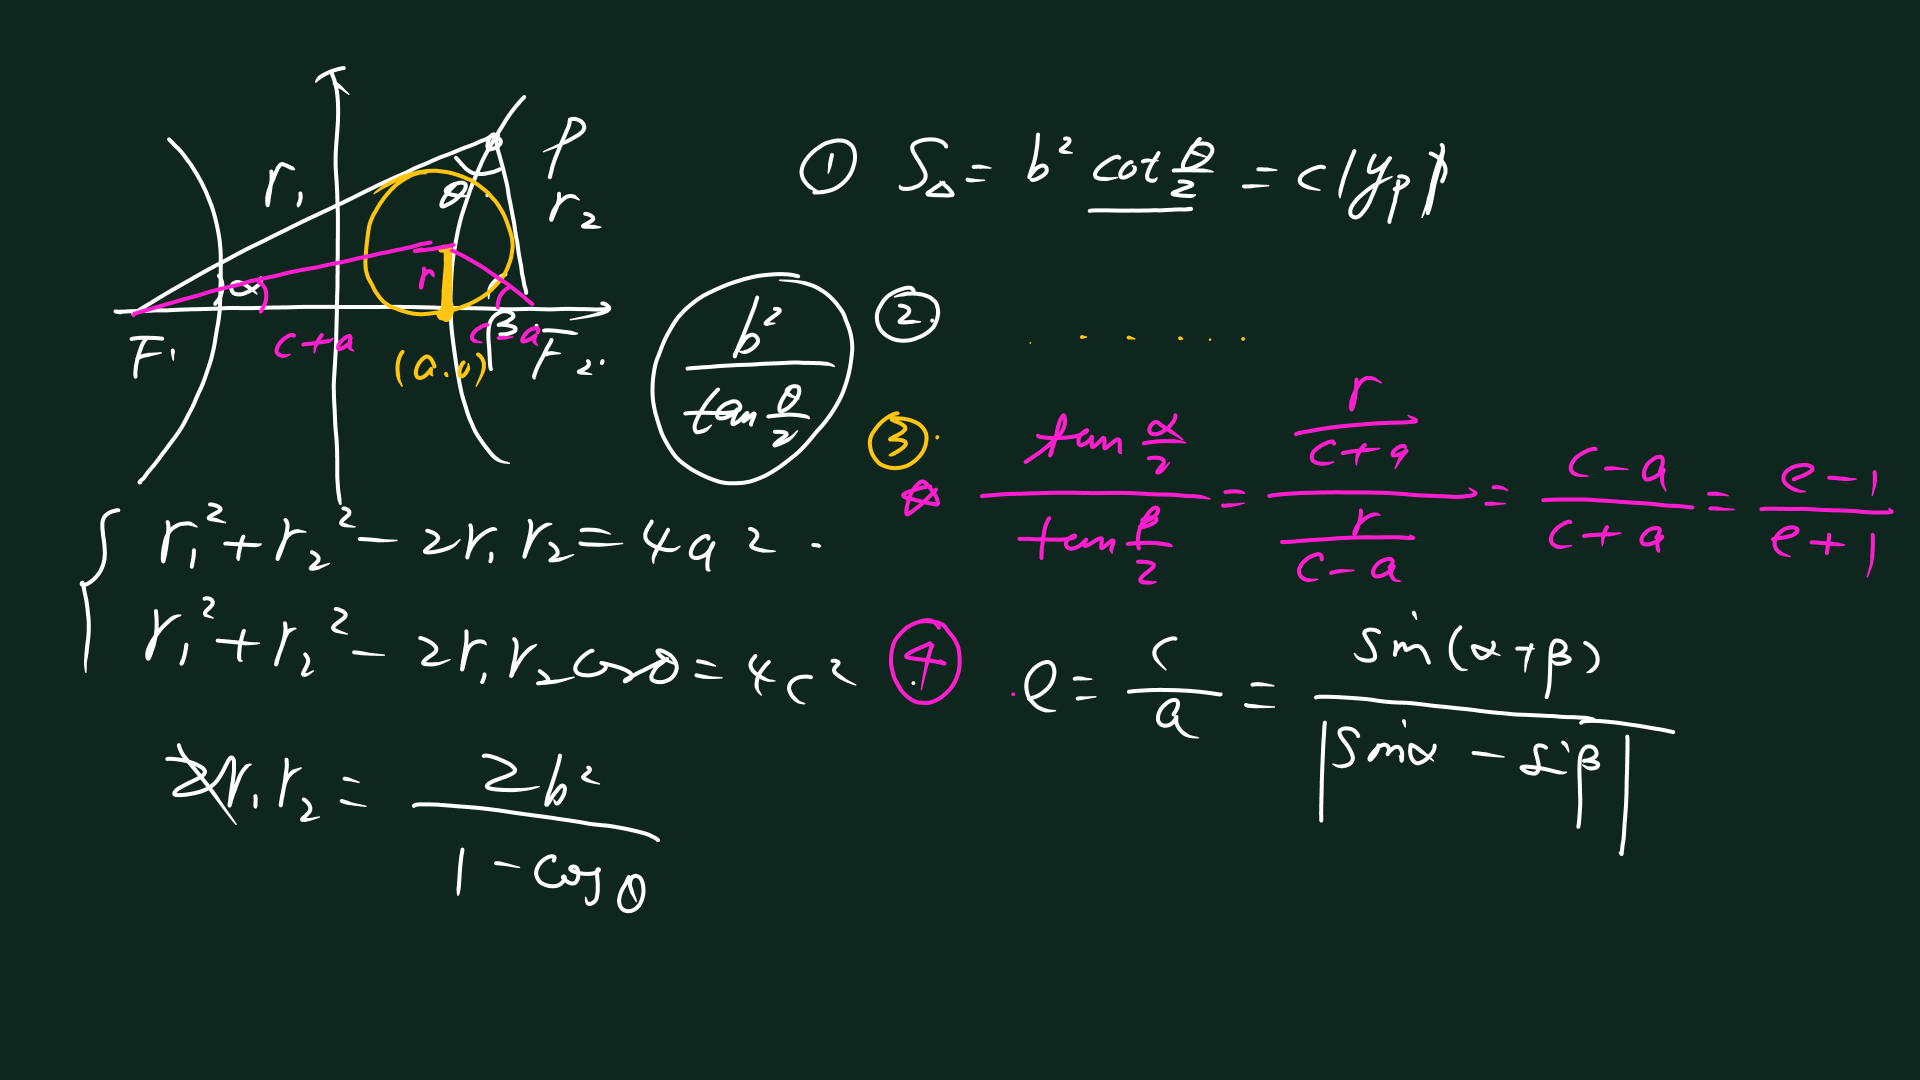 r₁
P
θ
r₂
r
α
β
c+a
c-a
F₁
(a.0)
F₂
① S△ = b² cot θ/2 = c|yₚ|
b²/tan θ/2
② . . . . . .
③ ☆ (tan α/2)/(tan β/2) = (r/(c+a))/(r/(c-a)) = (c-a)/(c+a) = (e-1)/(e+1)
{ r₁² + r₂² - 2r₁r₂ = 4a²
r₁² + r₂² - 2r₁r₂cosθ = 4c²
④ e = c/a = sin(α+β)/|sinα - siβ|
r₁r₂ = 2b²/(1-cosθ)